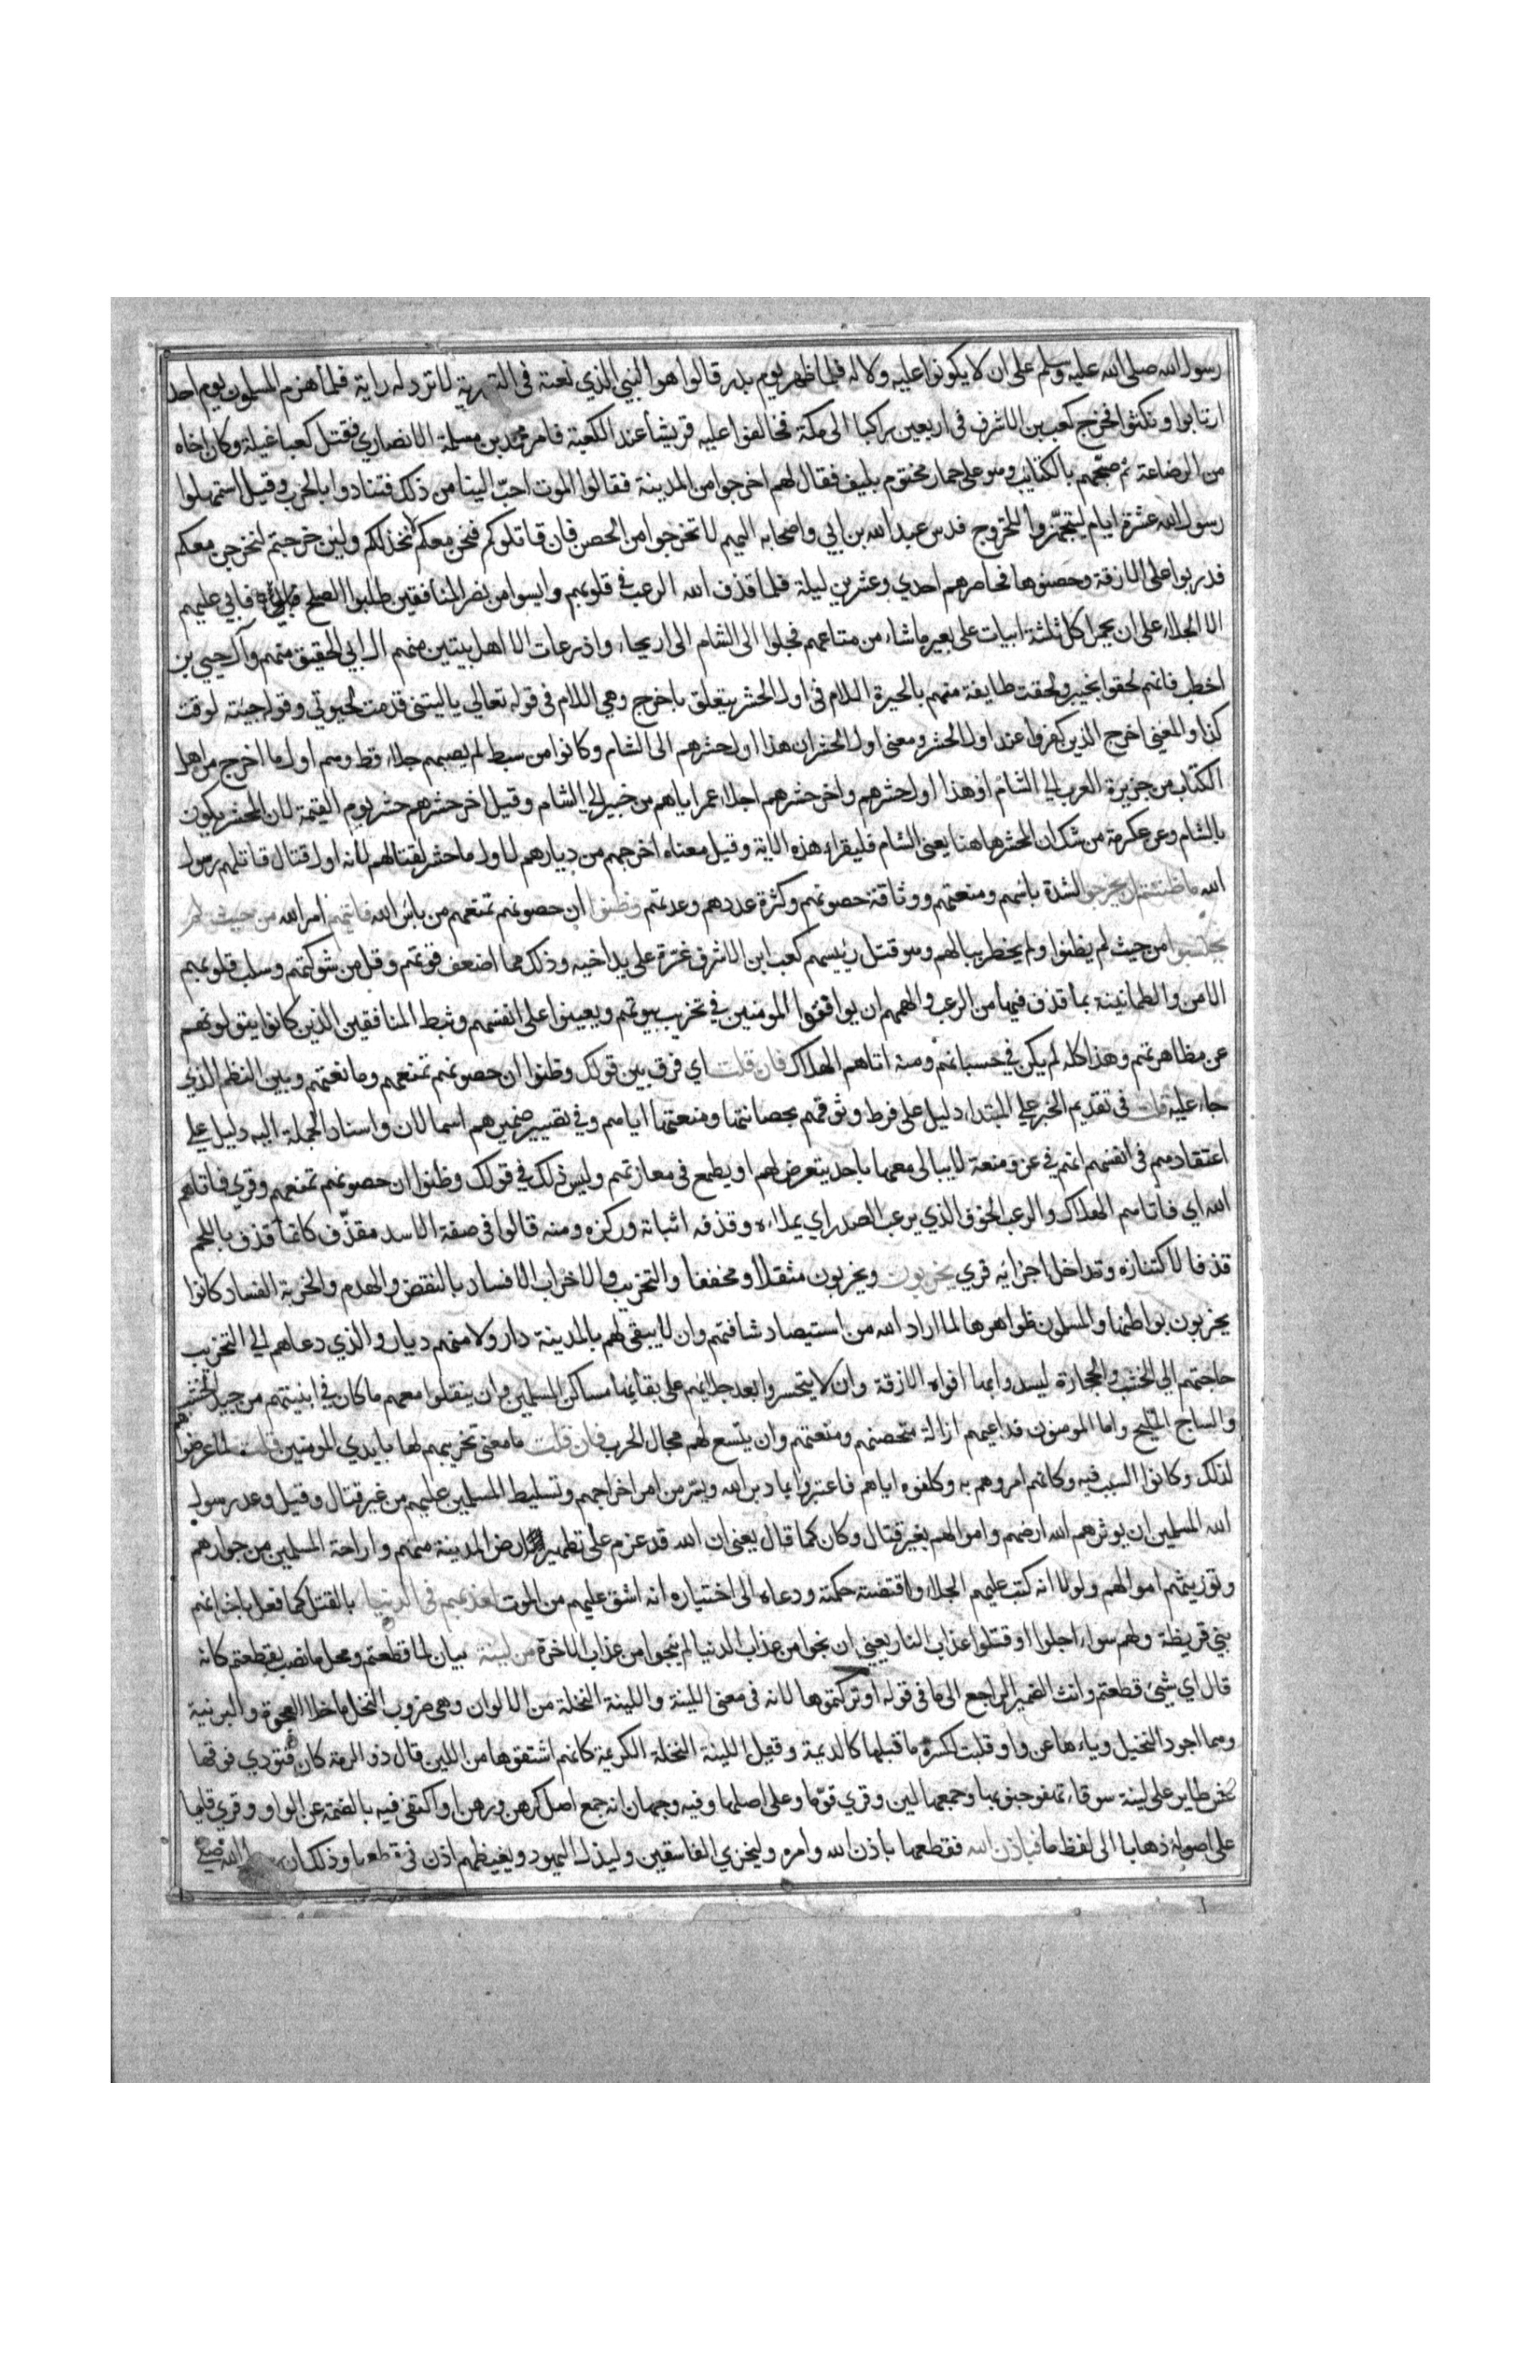 رسول الله صلى الله عليه وسلم على ان لا يكونوا عليه ولا له فلما ظهر يوم بدر قالوا هو النبي الذي نعته في التورية لا ترد له راية فلما هزم المسلمون يوم احد
ارتابوا ونكثوا فخرج كعب بن الاشرف في اربعين راكبا الى مكة فحالفوا عليه قريشا عند الكعبة فامر محمد بن مسلمة الانصاري فقتل كعبا غيلة وكان اخاه
من الرضاعة ثم صبحهم بالكتائب وهو على حمار مختوم بليف فقال لهم اخرجوا من المدينة فقالوا الموت احبّ الينا من ذلك فتنادوا بالحرب وقيل استمهلوا
رسول الله عشرة ايام ليتجهّزوا للخروج فدس عبد الله بن ابي واصحابه اليهم لا تخرجوا من الحصن فان قاتلوكم فنحن معكم لا نخذلكم ولئن خرجتم لنخرجن معكم
فدربوا على الازقة وحصنوها فحاصرهم احدي وعشرين ليلة فلما قذف الله الرعب في قلوبهم وايسوا من نصر المنافقين طلبوا الصلح فابي عليهم
الا الجلاء على ان يحمل كل ثلثة ابيات على بعير ما شاء من متاعهم فجلوا الى الشام الى اريحا، واذرعات الا اهل بيتين منهم ال ابي الحقيق منهم وآل حيي بن
اخطب فانهم لحقوا بخيبر ولحقت طايفة منهم بالحيرة اللام في اول الحشر يتعلق باخرج وهي اللام في قوله تعالي ياليتني قدمت لحيوتي وقوله جيته لوقت
كذا والمعني اخرج الذين كفروا عند اول الحشر ومعنى اول الحشر ان هذا اول حشرهم الى الشام وكانوا من سبط لم يصبهم جلاء قط وهم اول ما اخرج من اهل
الكتاب من جزيرة العرب الي الشام او هذا اول حشرهم واخر حشرهم اجلاء عمر اياهم من خيبر الي الشام وقيل اخر حشرهم حشر يوم القيمة لان المحشر يكون
بالشام وعن عكرمة من شك ان المحشر هاهنا يعني الشام فليقراء هذه الاية وقيل معناه اخرجهم من ديارهم لاول ما حشر لقتالهم لانه اول قتال قاتلهم رسول
الله ما ظننتم ان يخرجوا لشدة باسهم ومنعتهم ووثاقة حصونهم وكثرة عددهم وعدتهم وظنوا ان حصونهم تمنعهم من باس الله فاتيهم امر الله من حيث لم
يحتسبوا من حيث لم يظنوا ولم يخطر ببالهم وهو قتل رئيسهم كعب ابن الاشرف غرّة على يد اخيه وذلك مما اضعف قوتهم وفل من شوكتهم وسلب قلوبهم
الامن والطمانينة بما قذف فيها من الرعب والهمهم ان يوافقوا المومنين في تخريب بيوتهم ويعينوا على انفسهم وثبط المنافقين الذين كانوا يتولونهم
عن مظاهرتهم وهذا كله لم يكن في حسبانهم ومنه اتاهم الهلاك فان قلت اي فرق بين قولك وظنوا ان حصونهم تمنعهم ومانعتهم وبين النظم الذي
جاء عليه قلت في تقديم الخبر علي المبتداء دليل على فرط وثوقهم بحصانتها ومنعتها اياهم وفي تصيير ضميرهم اسما لان واسناد الجملة اليه دليل علي
اعتقادهم في انفسهم انهم في عز ومنعة لا يبالى معها باحد يتعرض لهم او يطمع في معازتهم وليس ذلك في قولك وظنوا ان حصونهم تمنعهم وقري فاتاهم
الله اي فاتاهم الهلاك والرعب الخوف الذي يرعب الصدر اي يملاءه وقذفه اثباته وركزه ومنه قالوا في صفة الاسد مقذّف كانما قذف باللحم
قذفا لاكتنازه وتداخل اجزايه قري يخربون ويخربون مثقلا ومخففا والتخريب والاخراب الافساد بالنقض والهدم والخربة الفساد كانوا
يخربون بواطنها والمسلمون ظواهرها لما اراد الله من استيصاد شافتهم وان لا يبقي لهم بالمدينة دار ولا منهم ديار والذي دعاهم الي التخريب
حاجتهم الي الخشب والحجارة ليسدوا بها افواه الازقة وان لا يتحسروا بعد جلائهم على بقائها مساكن للمسلمين وان ينقلوا معهم ما كان في ابنيتهم من جيد الخشب
والساج المليح واما المومنون فداعيهم ازالة متحصنهم ومتعتهم وان يتسع لهم مجال الحرب فان قلت ما معنى تخريبهم لها بايدي المومنين قلت لما عرضوهم
لذلك وكانوا السبب فيه وكانهم امروهم به وكلفوه اياهم فاعتبروا بما دبر الله ويسّر من امر اخراجهم وتسليط المسلمين عليهم من غير قتال وقيل وعد رسول
الله المسلمين ان يورثهم الله ارضهم واموالهم بغير قتال وكان كما قال يعني ان الله قد عزم على تطهير ارض المدينة منهم واراحة المسلمين من جوارهم
وتوريثهم اموالهم ولولا انه كتب عليهم الجلاء واقتضته حكمته ودعاه الى اختياره انه اشق عليهم من الموت لعذبهم في الدنيا بالقتل كما فعل باخوانهم
بني قريظة ولهم سواء اجلوا او قتلوا عذاب النار يعني ان نجوا من عذاب الدنيا لم ينجوا من عذاب الاخرة من لينة بيان لما قطعتم ومحل ما نصب بقطعتم كانه
قال اي شيئ قطعتم وانث الضمير الراجع الى ما في قوله او تركتموها لانه في معنى اللينة واللينة النخلة من الالوان وهي ضروب النخل ما خلا العجوة والبرنية
وهما اجود النخيل وياءها عن واو قلبت لكسرة ما قبلها كالديمة وقيل اللينة النخلة الكريمة كانهم اشتقوها من اللين قال ذو الرمة كان قتودي فوقها
عش طاير على لينة سوقاء تهفو جنوبها وجمعها لين وقري قوّما وعلى اصلها وفيه وجهان انه جمع اصل كرهن ورهن او اكتفى فيه بالضمة عن الواو وقري قايما
على اصوله ذهابا الى لفظ ما فباذن الله فقطعها باذن الله وأمره وليخزي الفاسقين وليذل اليهود ويغيظهم اذن في قطعها وذلك ان الله صلى